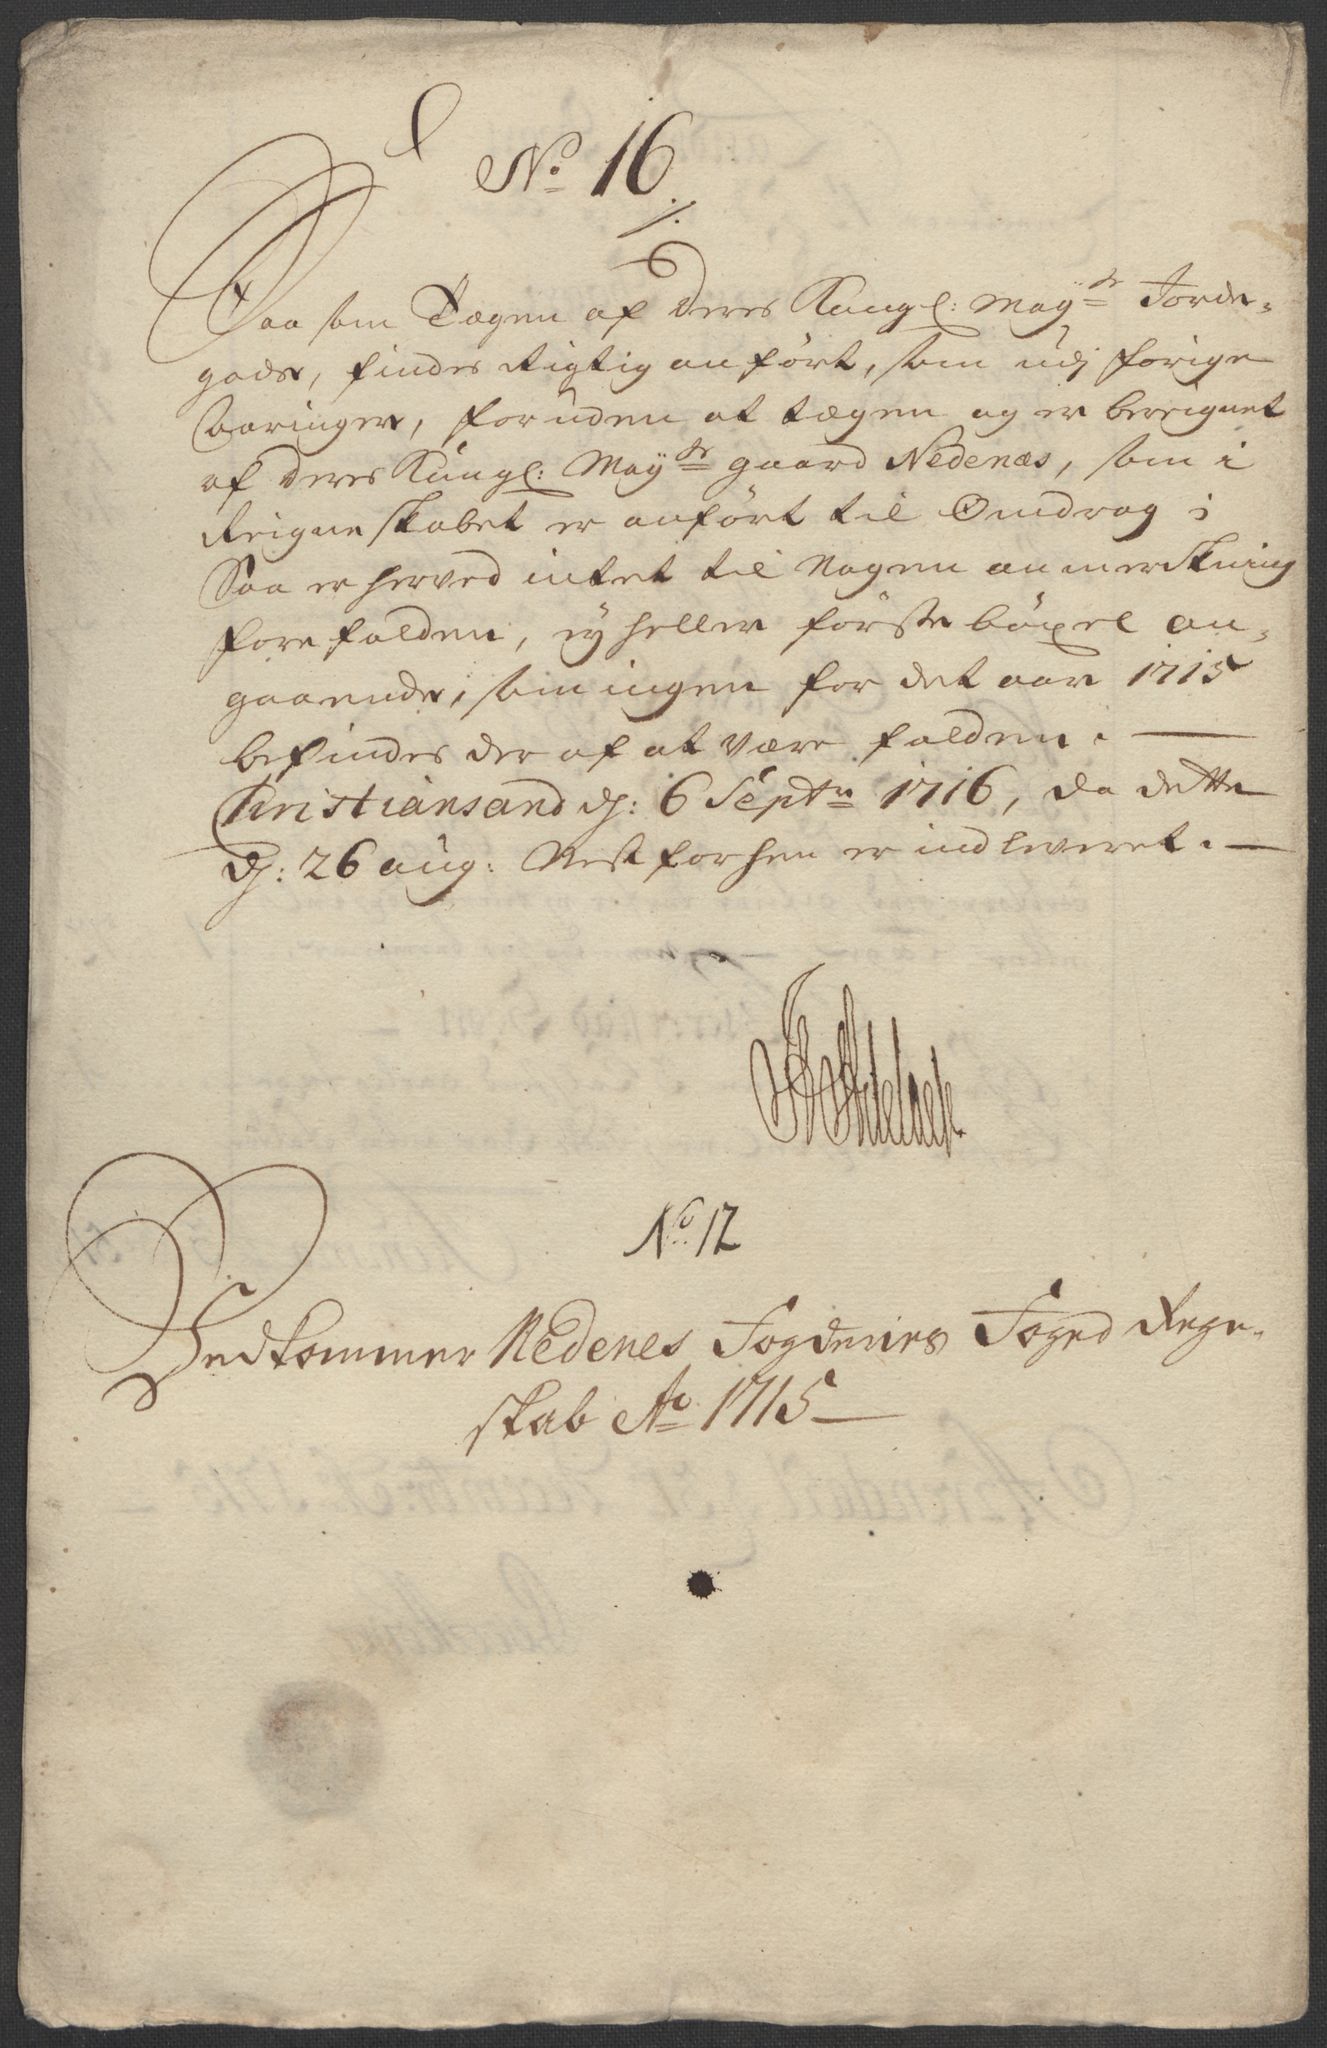 No 16
/.
Saa som Tægen af deres Kongl: Mayts Jorde-
gods, findes Rigtig anført, som udj forige
Aaringer, foruden at tægen og er bereignet
af deres Kongl: Mayts gaard Nedenæs, som i
Reigneskabet er anført til Omdrag i
Saa er herved intet til Nogen anmerkning
forefalden, ey heller første böxel an-
gaaende, som ingen for det aar 1715
befindes der af at være falden. —
Christiansand dj: 6 Septr 1716, da dette
dj: 26 aug: Nest forhen er indleveret. —
No: 12
Vedkommer Nedenes Fogderies Foged Rege-
skab Ao 1715 —